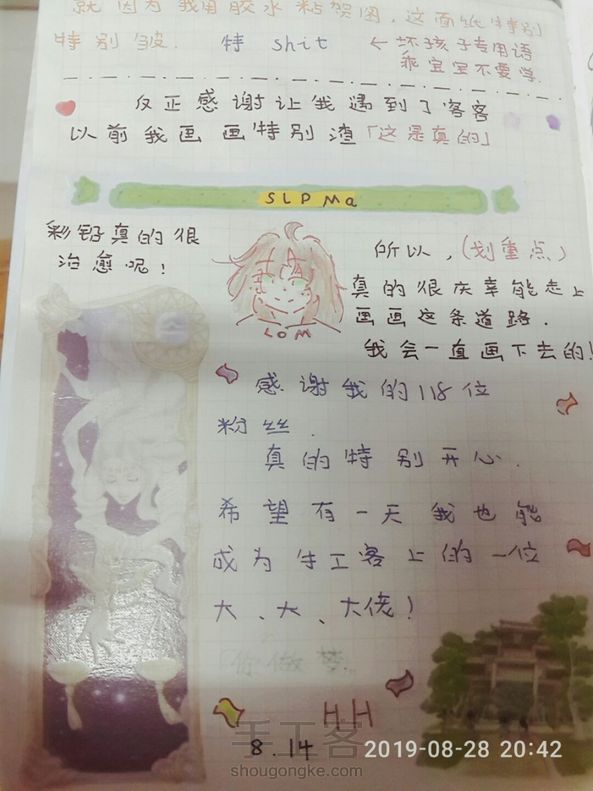 就因为我用胶水粘贺图，这面纸特别
特别皱． 特 shit ← 坏孩子专用语
乖宝宝不要学．
反正感谢让我遇到了客客
以前我画画特别渣「这是真的」
SLPMa
彩铅真的很
治愈呢！
所以，（划重点）
真的很庆幸能走上
画画这条道路．
我会一直画下去的！
LOM
感谢我的118位
粉丝．
真的特别开心．
希望有一天我也能
成为手工客上的一位
大、大、大佬！
「你做梦」
HH
8.14
手工客
shougongke.com
2019-08-28 20:42